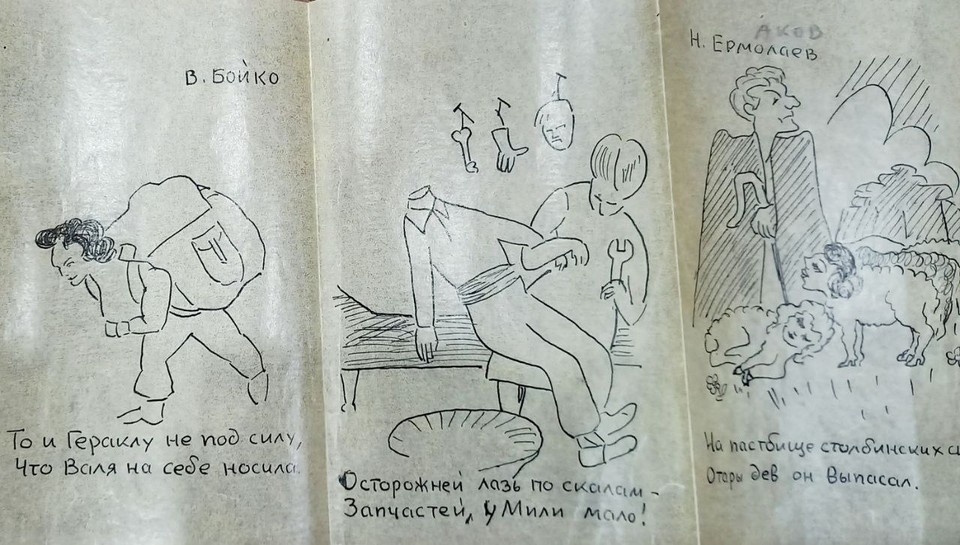 В. Бойко
То и Гераклу не под силу,
Что Валя на себе носила.
Осторожней лазь по скалам –
Запчастей, у Мили мало!
АКЕЛ
Н. Ермолаев
На пастбище столбинских
Отары дев он выпасал.